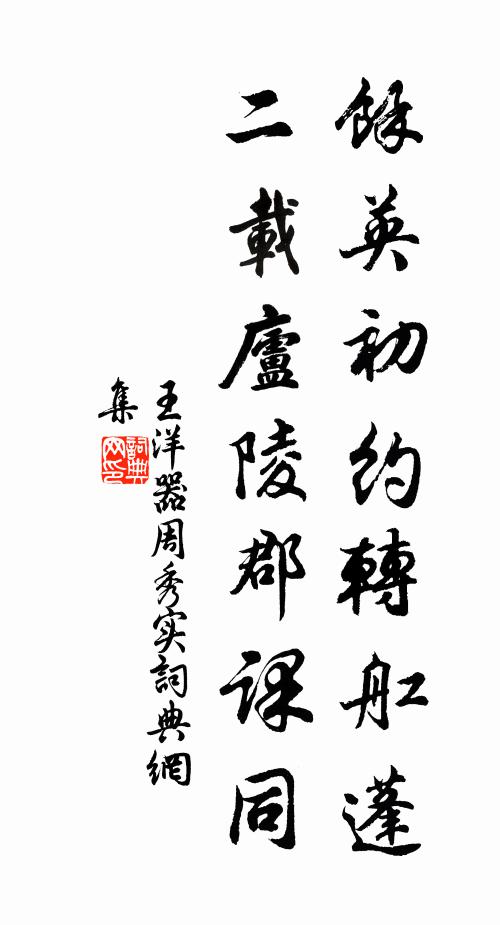 餘英初約轉舡蓬
二載廬陵郡課同
王洋器周秀实詞典網
集
詞典网印